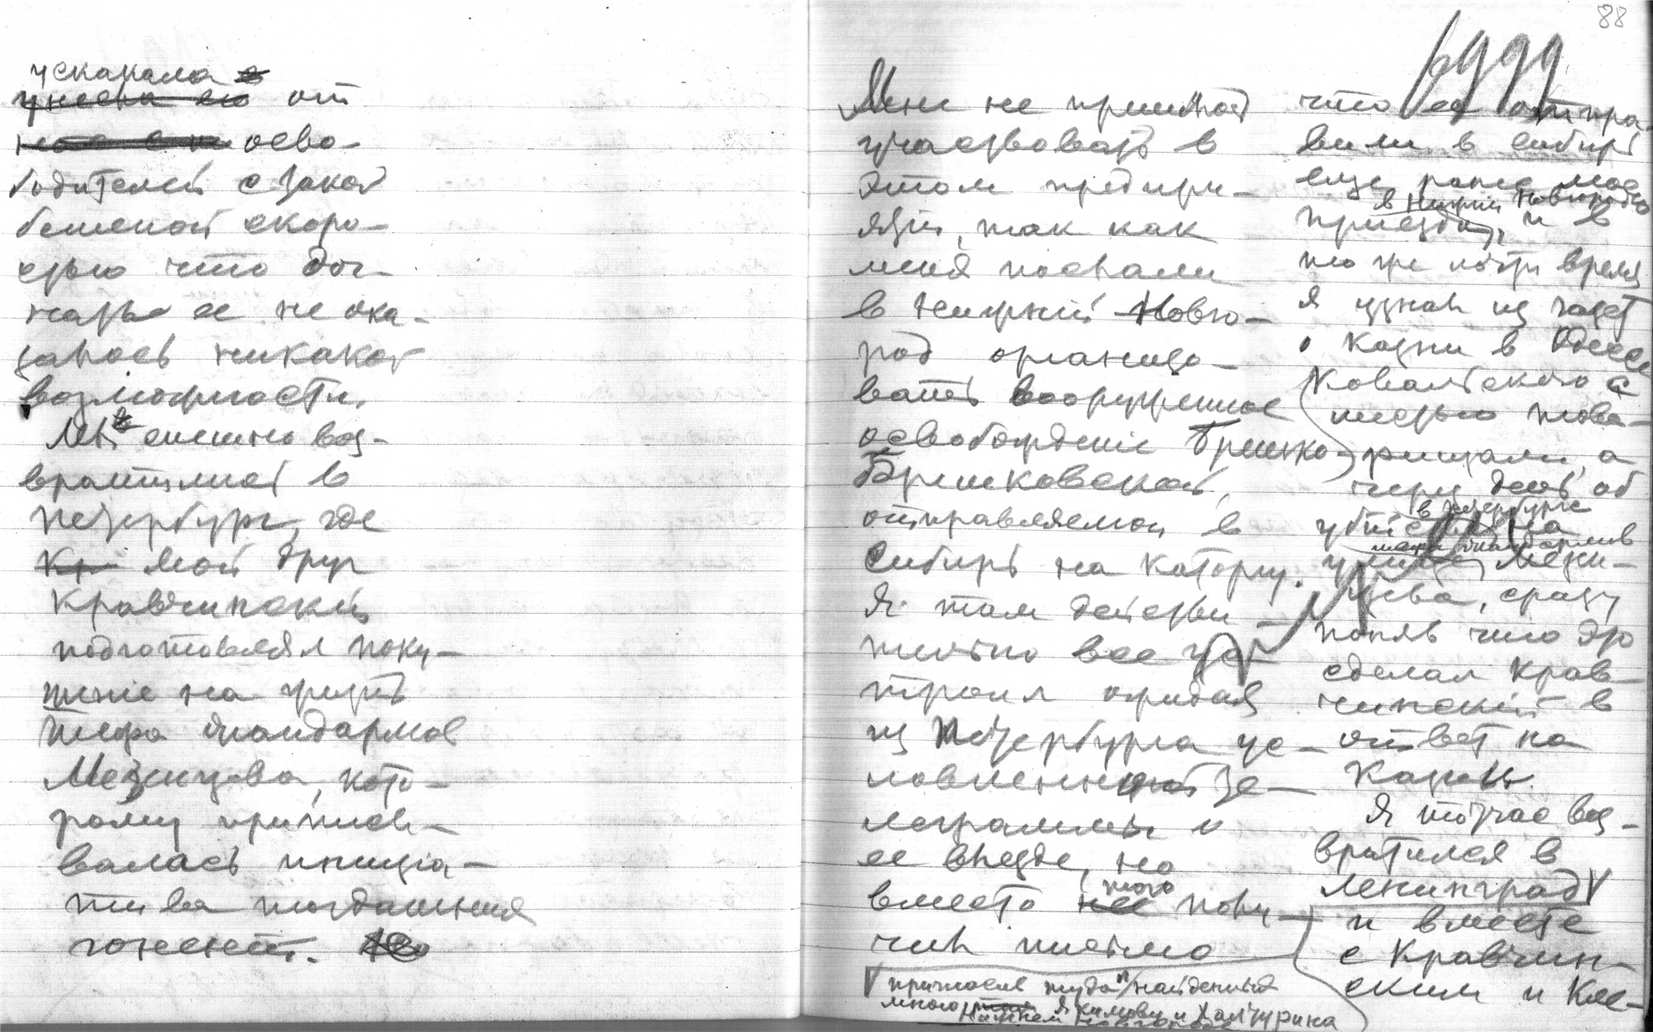 ускакала
унесла ее от
освo-
бодителей с такой
бешеной скоро-
стью что дог-
нать ее не ока-
залось никакой
возможности.
Мы спешно воз-
вратились в
Петербург, где
Кр мой друг
Кравчинский
подготовлял поку-
шение на жизнь
шефа жандармов
Мезенцева, кото-
рому приписы-
валась инициа-
тива тогдашних
гонений. Но
88
Мне не пришлось
участвовать в
этом предпри-
ятии, так как
меня послали
в Нижний Новго-
род организо-
вать вооруженное
освобождение Брешко-
Брешковской,
отправляемой в
Сибирь на каторгу.
Я там действи-
тельно все ус-
троил ожидая
из Петербурга ус-
ловленной те-
леграммы о
ее въезде, но
вместо того полу-
чил письмо
что ее отпра-
вили в Сибирь
еще ранее моего
приезда в Нижний Новгород, и в
то же почти время
я узнал из газет
о казни в Одессе
Ковальского с
шестью това-
рищами, а
через день об
убийстве в Петербурге
шефа жандармов Мезен-
цева, сразу
поняв что это
сделал Крав-
чинский в
ответ на
казнь.
Я тотчас воз-
вратился в
Ленинград
и вместе
с Кравчин-
ским и Кле-
пригласив туда найденных
мною Якимову и Халтурина